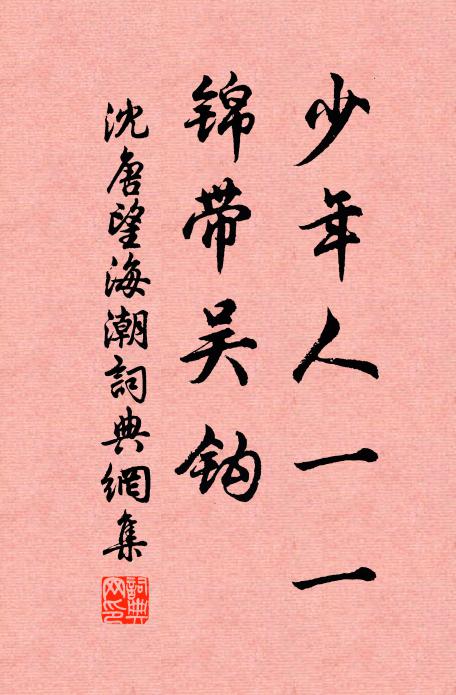 少年人一一
锦带吴钩
沈唐望海潮詞典網集
詞典网印